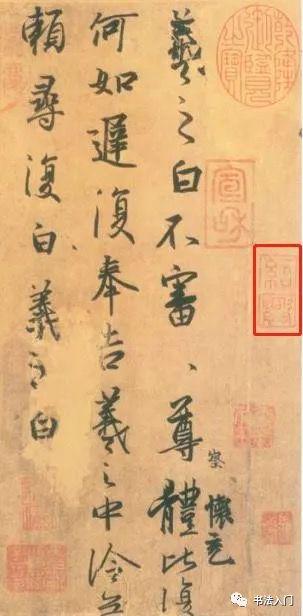 宣和
紹興
羲之白不審、尊體比復
察
懷充
何如遲復奉告羲之中冷無
賴尋復白、羲之白
书法入门